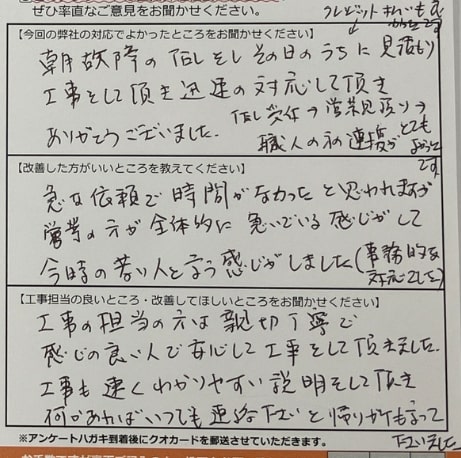 ぜひ率直なご意見をお聞かせください。
クレジット支払いもできて
よかったです
【今回の弊社の対応でよかったところをお聞かせください】
朝故障のTELをしその日のうちに見積り
工事をして頂き迅速の対応して頂き
ありがとうございました。
TEL受付→営業見積り→
職人の方の連携がとても
よかったです
【改善した方がいいところを教えてください】
急な依頼で時間がなかったと思われますが
営業の方が全体的に急いでいる感じがして
今時の若い人と言う感じがしました(事務的な
対応でした)
【工事担当の良いところ・改善してほしいところをお聞かせください】
工事の担当の方は親切丁寧で
感じの良い人で安心して工事をして頂きました。
工事も速くわかりやすい説明をして頂き
何かあればいつでも連絡下さいと帰りがけも言って
下さいました
※アンケートハガキ到着後にクオカードを郵送させていただきます。